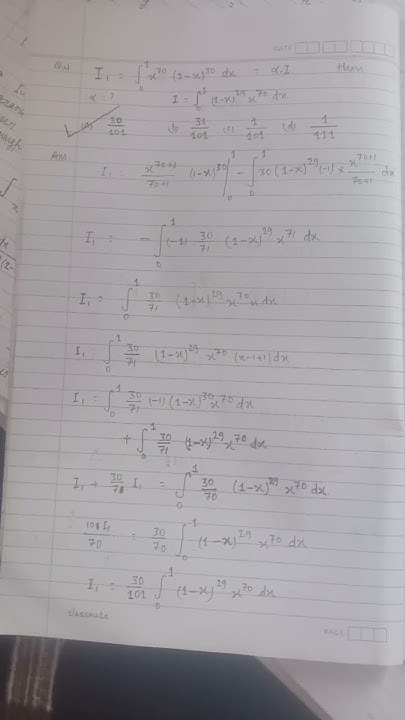 DATE
Q.4 I₁ = ∫₀¹ x⁷⁰ (1-x)³⁰ dx = α.I then
α = ? I = ∫₀¹ (1-x)²⁹ x⁷⁰ dx
(a) 30/101 (b) 31/101 (c) 1/101 (d) 1/111
Ans I₁ = x⁷⁰⁺¹/70+1 (1-x)³⁰ |₀¹ - ∫₀¹ 30 (1-x)²⁹ (-1) × x⁷⁰⁺¹/70+1 dx
I₁ = - ∫₀¹ (-1) 30/71 (1-x)²⁹ x⁷¹ dx
I₁ = ∫₀¹ 30/71 (1-x)²⁹ x⁷⁰ x dx
I₁ = ∫₀¹ 30/71 (1-x)²⁹ x⁷⁰ (x-1+1) dx
I₁ = ∫₀¹ 30/71 (-1) (1-x)³⁰ x⁷⁰ dx
+ ∫₀¹ 30/71 (1-x)²⁹ x⁷⁰ dx
I₁ + 30/71 I₁ = ∫₀¹ 30/70 (1-x)²⁹ x⁷⁰ dx
101 I₁/70 = 30/70 ∫₀¹ (1-x)²⁹ x⁷⁰ dx
I₁ = 30/101 ∫₀¹ (1-x)²⁹ x⁷⁰ dx
classmate
PAGE